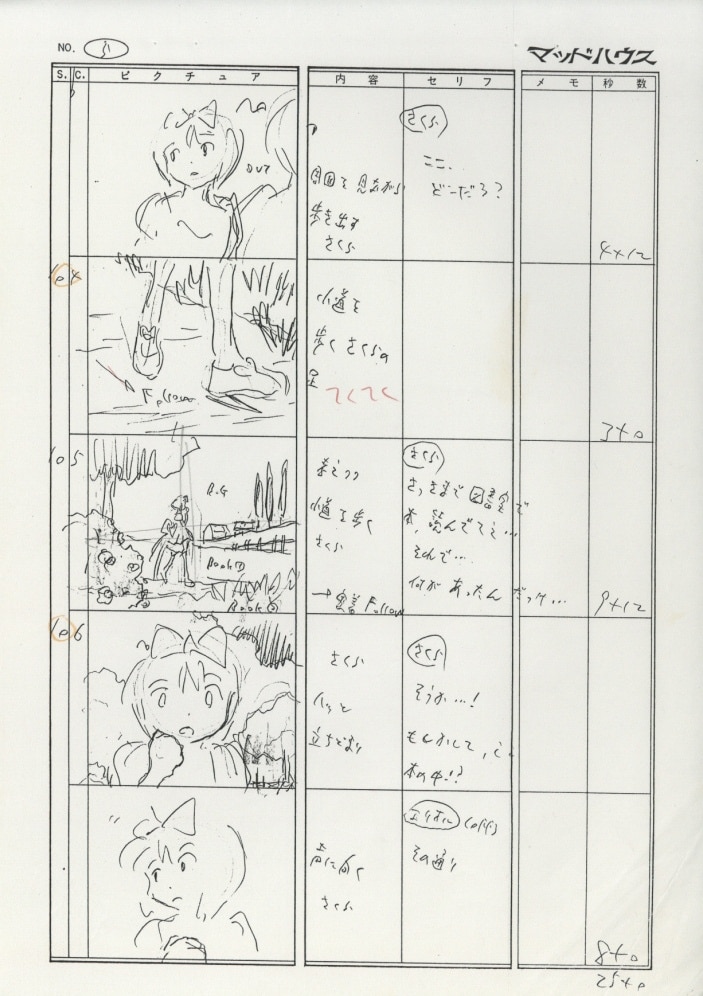 NO.
マッドハウス
S. C. ピクチュア 内容 セリフ メモ 秒数
さくら
ここ、
どこだろ?
OUT
歩き出す
さくら
4+12
104
小道を
歩くさくらの
足
てくてく
Follow
3+0
105
B.G
Book①
Book②
小道を歩く
さくら
→ Follow
さくら
さっきまで図書室で
本、読んでてえ…
そんで…
何があったんだっけ…
9+12
106
さくら
立ちどまり
さくら
そうか…!
もしかして、
本の中!?
さくら
エリオル (off)
その通り
8+0
25+0